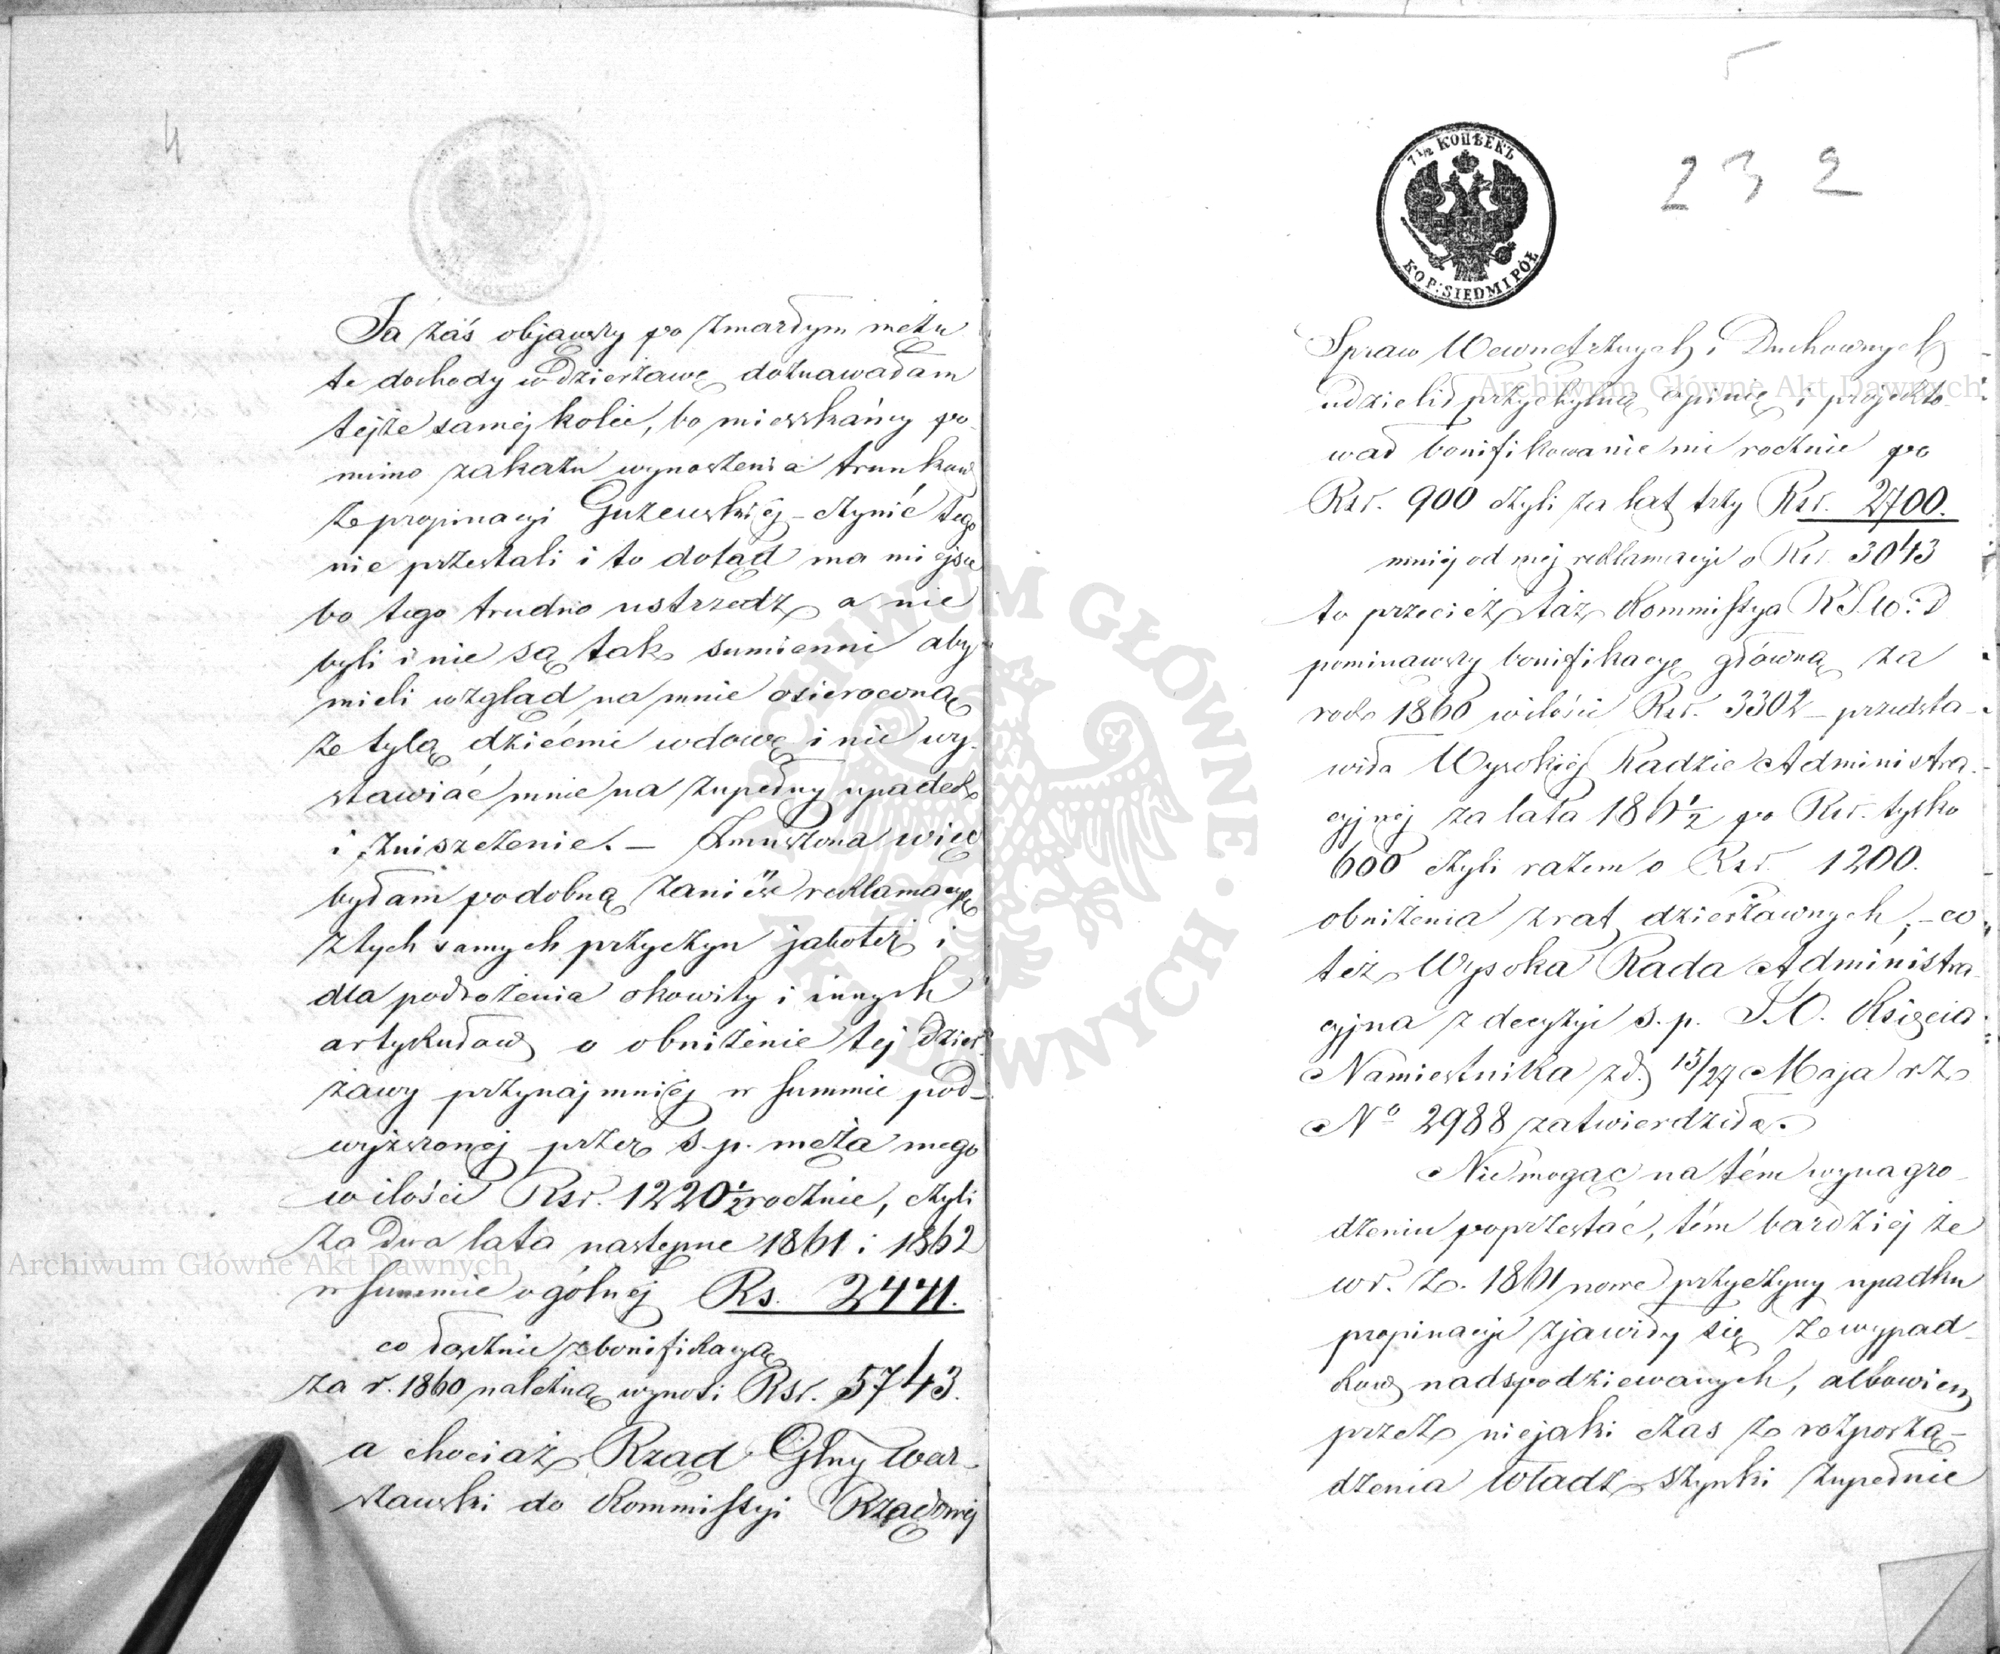 4
Ja zaś objąwszy po zmarłym mężu
te dochody w dzierżawę doznawałam
tejże saméj kolei, bo mieszkańcy po-
mimo zakazu wynoszenia trunków
ze propinacyi Guzewskiéj – czynić tego
nie przestali i to dotąd ma miejsce
bo tego trudno ustrzedz, a nie
byli i nie są tak sumienni aby
mieli wzgląd na mnie osieroconą
ze tylą dziećmi wdowę i nie wy-
stawiać mnie na zupełny upadek
i zniszczenie. – Zmuszona więc
byłam podobną zanieść reklamacyę
z tych samych przyczyn jakoteż i
dla podrożenia okowity i innych
artykułów o obniżenie tej dzier-
żawy przynajmniéj w summie pod-
wyższonej przez ś. p. męża mego
w ilości Rsr. 1220 1/2 rocznie, czyli
za dwa lata następne 1861 i 1862
w summie ogólnéj Rs. 2441.
co łącznie z bonifikacyą
za r. 1860 należną wynosi Rsr. 5743.
a chociaż Rząd Glny War-
szawski do Kommissyi Rządowéj
5
232
7 1/2 КОПѢЕКЪ
KOP: SIEDM I PÓŁ
Spraw Wewnętrznych i Duchownych
udzielił przychylną opinię i projekto-
wał bonifikowanie mi rocznie po
Rsr. 900 czyli za lat trzy Rsr. 2700.
mniéj od méj reklamacyi o Rsr 3043
to przecież taż Kommissya R.S.W. i D
pominąwszy bonifikacyę główną za
rok 1860 w ilości Rsr. 3302 – przedsta-
wiła Wysokiéj Radzie Administra-
cyjnéj za lata 186 1/2 po Rsr. tylko
600 czyli razem o Rsr. 1200.
obniżenia z rat dzierżawnych, – co
też Wysoka Rada Administra-
cyjna z decyzyi ś. p. J. O. Księcia
Namiestnika z d. 15/27 Maja r. z.
No 2988 zatwierdziła.
Nie mogąc na tém wynagro-
dzeniu poprzestać, tém bardziéj że
w r. z. 1861 nowe przyczyny upadku
propinacyi zjawiły się ze wypad-
ków nadspodziewanych, albowiem
przez niejaki czas z rozporzą-
dzenia Władz szynki zupełnie
Archiwum Główne Akt Dawnych
Archiwum Główne Akt Dawnych
ARCHIWUM GŁÓWNE AKT DAWNYCH